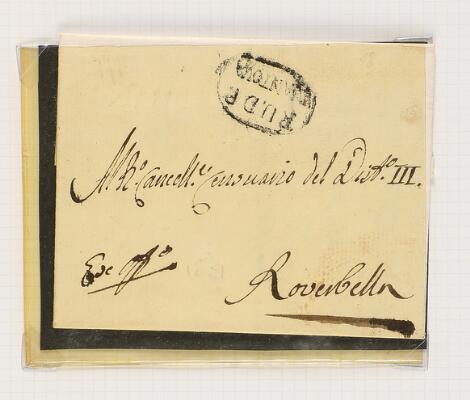 R.U.D.P.
MANTOVA
Al R.º Cancell.e Censuario del Dist.º III.
Ex off.º
Roverbella